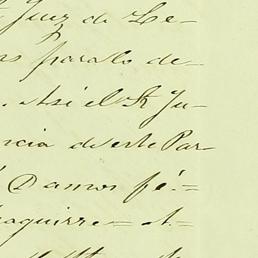 Juez de Le=
para lo de=
. Así el Sr Ju=
ncia de este Par=
Damos fé.=
aguirre= A=